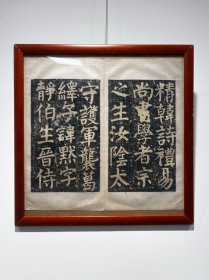 精韓詩禮易
尚書學者宗
之生汝陰太
守護軍襲葛
繹子諱默字
靜伯生晉侍